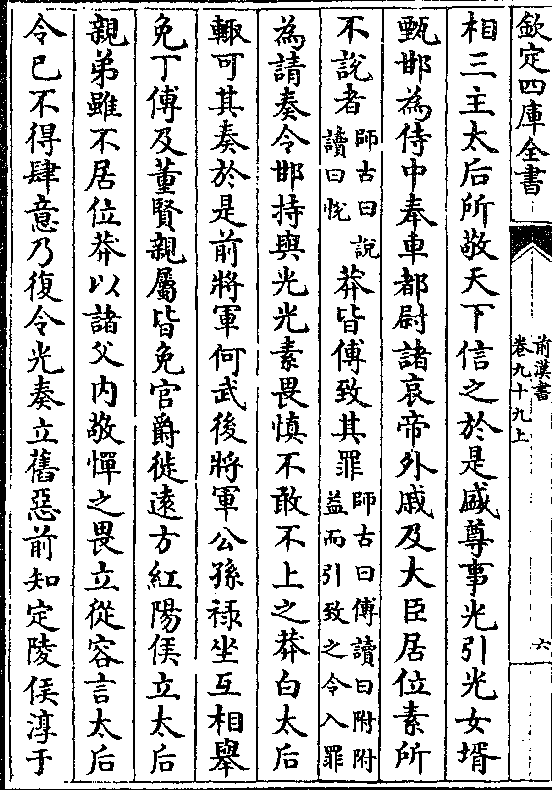 欽定四庫全書
前漢書
卷九十九上
六
相三主太后所敬天下信之於是盛尊事光引光女壻
甄邯為侍中奉車都尉諸哀帝外戚及大臣居位素所
不說者師古曰說讀曰悅莽皆傅致其罪師古曰傅讀曰附附益而引致之令入罪
為請奏令邯持與光光素畏慎不敢不上之莽白太后
輙可其奏於是前將軍何武後將軍公孫祿坐互相舉
免丁傅及董賢親屬皆免官爵徙遠方紅陽侯立太后
親弟雖不居位莽以諸父内敬憚之畏立從容言太后
令已不得肆意乃復令光奏立舊惡前知定陵侯淳于